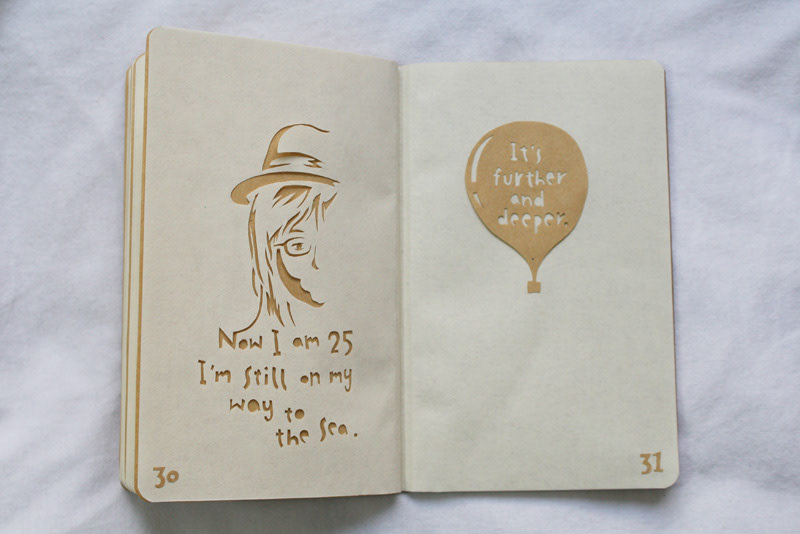 Now I am 25
I'm still on my
way to
the sea.
30
It's
further
and
deeper.
31